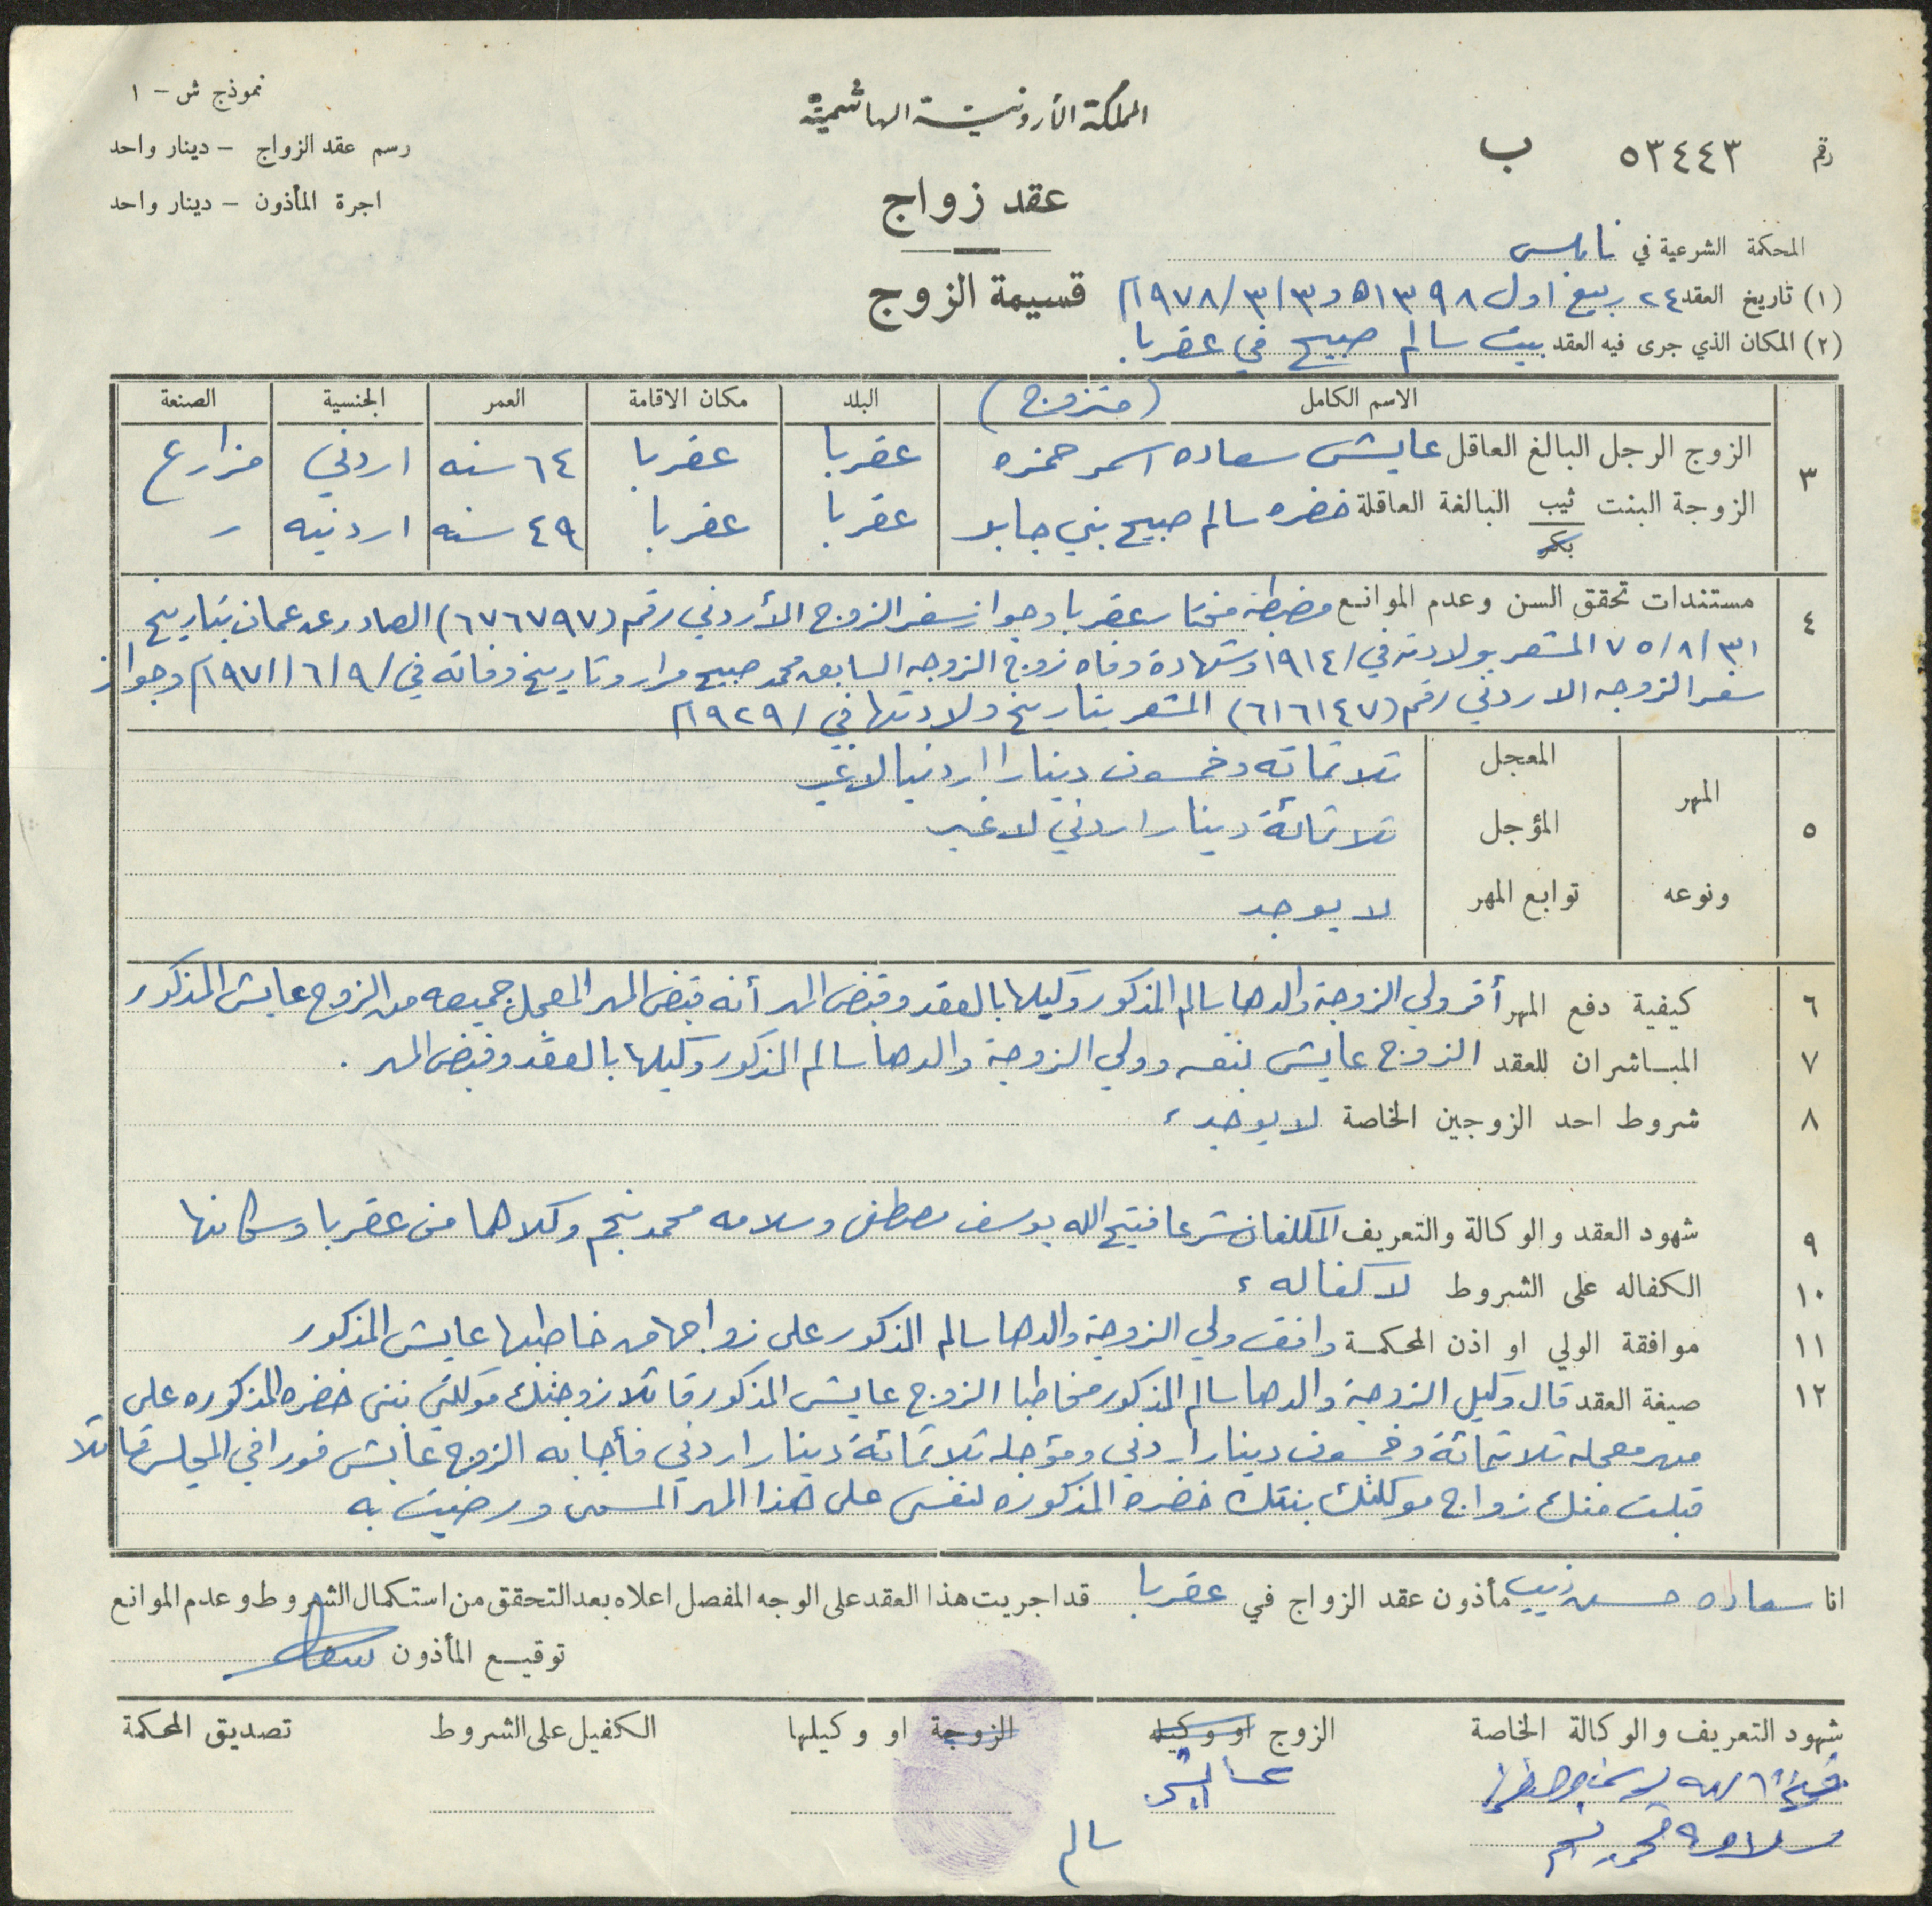 المملكة الأردنية الهاشمية
نموذج ش - ١
رسم عقد الزواج - دينار واحد
اجرة المأذون - دينار واحد
رقم ٥٣٤٤٣ ب
عقد زواج
قسيمة الزوج
المحكمة الشرعية في نابلس
(١) تاريخ العقد ٢٤ ربيع اول ١٣٩٨ه و ٣/٣/١٩٧٨م
(٢) المكان الذي جرى فيه العقد بيت سالم صبيح في عقربا.
الاسم الكامل (متزوج) البلد مكان الاقامة العمر الجنسية الصنعة
٣
الزوج الرجل البالغ العاقل عايش سعاده اسمر حمزه عقربا عقربا ٦٤ سنه اردني مزارع
الزوجة البنت ثيب البالغة العاقلة خضره سالم صبيح بني جابر عقربا عقربا ٤٩ سنه اردنيه ر
بكر
٤ مستندات تحقق السن وعدم الموانع مضبطة مختار عقربا وجواز سفر الزوج الأردني رقم (٦٧٦٧٩٧) الصادر عن عمان بتاريخ
٣١/٨/٧٥ المشعر بولادته في/ ١٩١٤ وشهادة وفاه زوج الزوجه السابق محمد صبيح مرار وتاريخ وفاته في/ ٩/٦/١٩٧١م وجواز
سفر الزوجه الاردني رقم (٦١٦١٤٧) المشعر بتاريخ ولادتها في / ١٩٢٩م
٥ المهر ونوعه
المعجل ثلاثمائه وخمسون دينارا اردنيا لاغير
المؤجل ثلاثمائة دينار اردني لاغير
توابع المهر لا يوجد
٦ كيفية دفع المهر أقر ولي الزوجة والدها سالم المذكور وكيلها بالعقد وقبض المهر أنه قبض المهر المعجل جميعه من الزوج عايش المذكور
٧ المباشران للعقد الزوج عايش بنفسه وولي الزوجة والدها سالم المذكور وكيلها بالعقد وقبض المهر .
٨ شروط احد الزوجين الخاصة لا يوجد ،
٩ شهود العقد والوكالة والتعريف المكلفان شرعا فتيح الله يوسف مصطفى وسلامه محمد نجم وكلاهما من عقربا وسكانها
١٠ الكفاله على الشروط لا كفاله ،
١١ موافقة الولي او اذن المحكمة وافق ولي الزوجة والدها سالم المذكور على زواجها من خاطبها عايش المذكور
١٢ صيغة العقد قال وكيل الزوجة والدها سالم المذكور مخاطبا الزوج عايش المذكور قائلا زوجتك موكلتي بنتي خضره المذكوره على
مهر معجله ثلاثمائة وخمسون دينار اردني ومؤجله ثلاثمائة دينار اردني فأجابه الزوج عايش فورا في المجلس قائلا
قبلت منك زواج موكلتك بنتك خضره المذكوره لنفسي على هذا المهر المسمى ورضيت به
انا سعاده حسن ذيب مأذون عقد الزواج في عقربا قد اجريت هذا العقد على الوجه المفصل اعلاه بعد التحقق من استكمال الشروط وعدم الموانع
توقيع المأذون
شهود التعريف والوكالة الخاصة الزوج او وكيله الزوجة او وكيلها الكفيل على الشروط تصديق المحكمة
فتيح الله يوسف مصطفى عايش
سلامه محمد نجم سالم